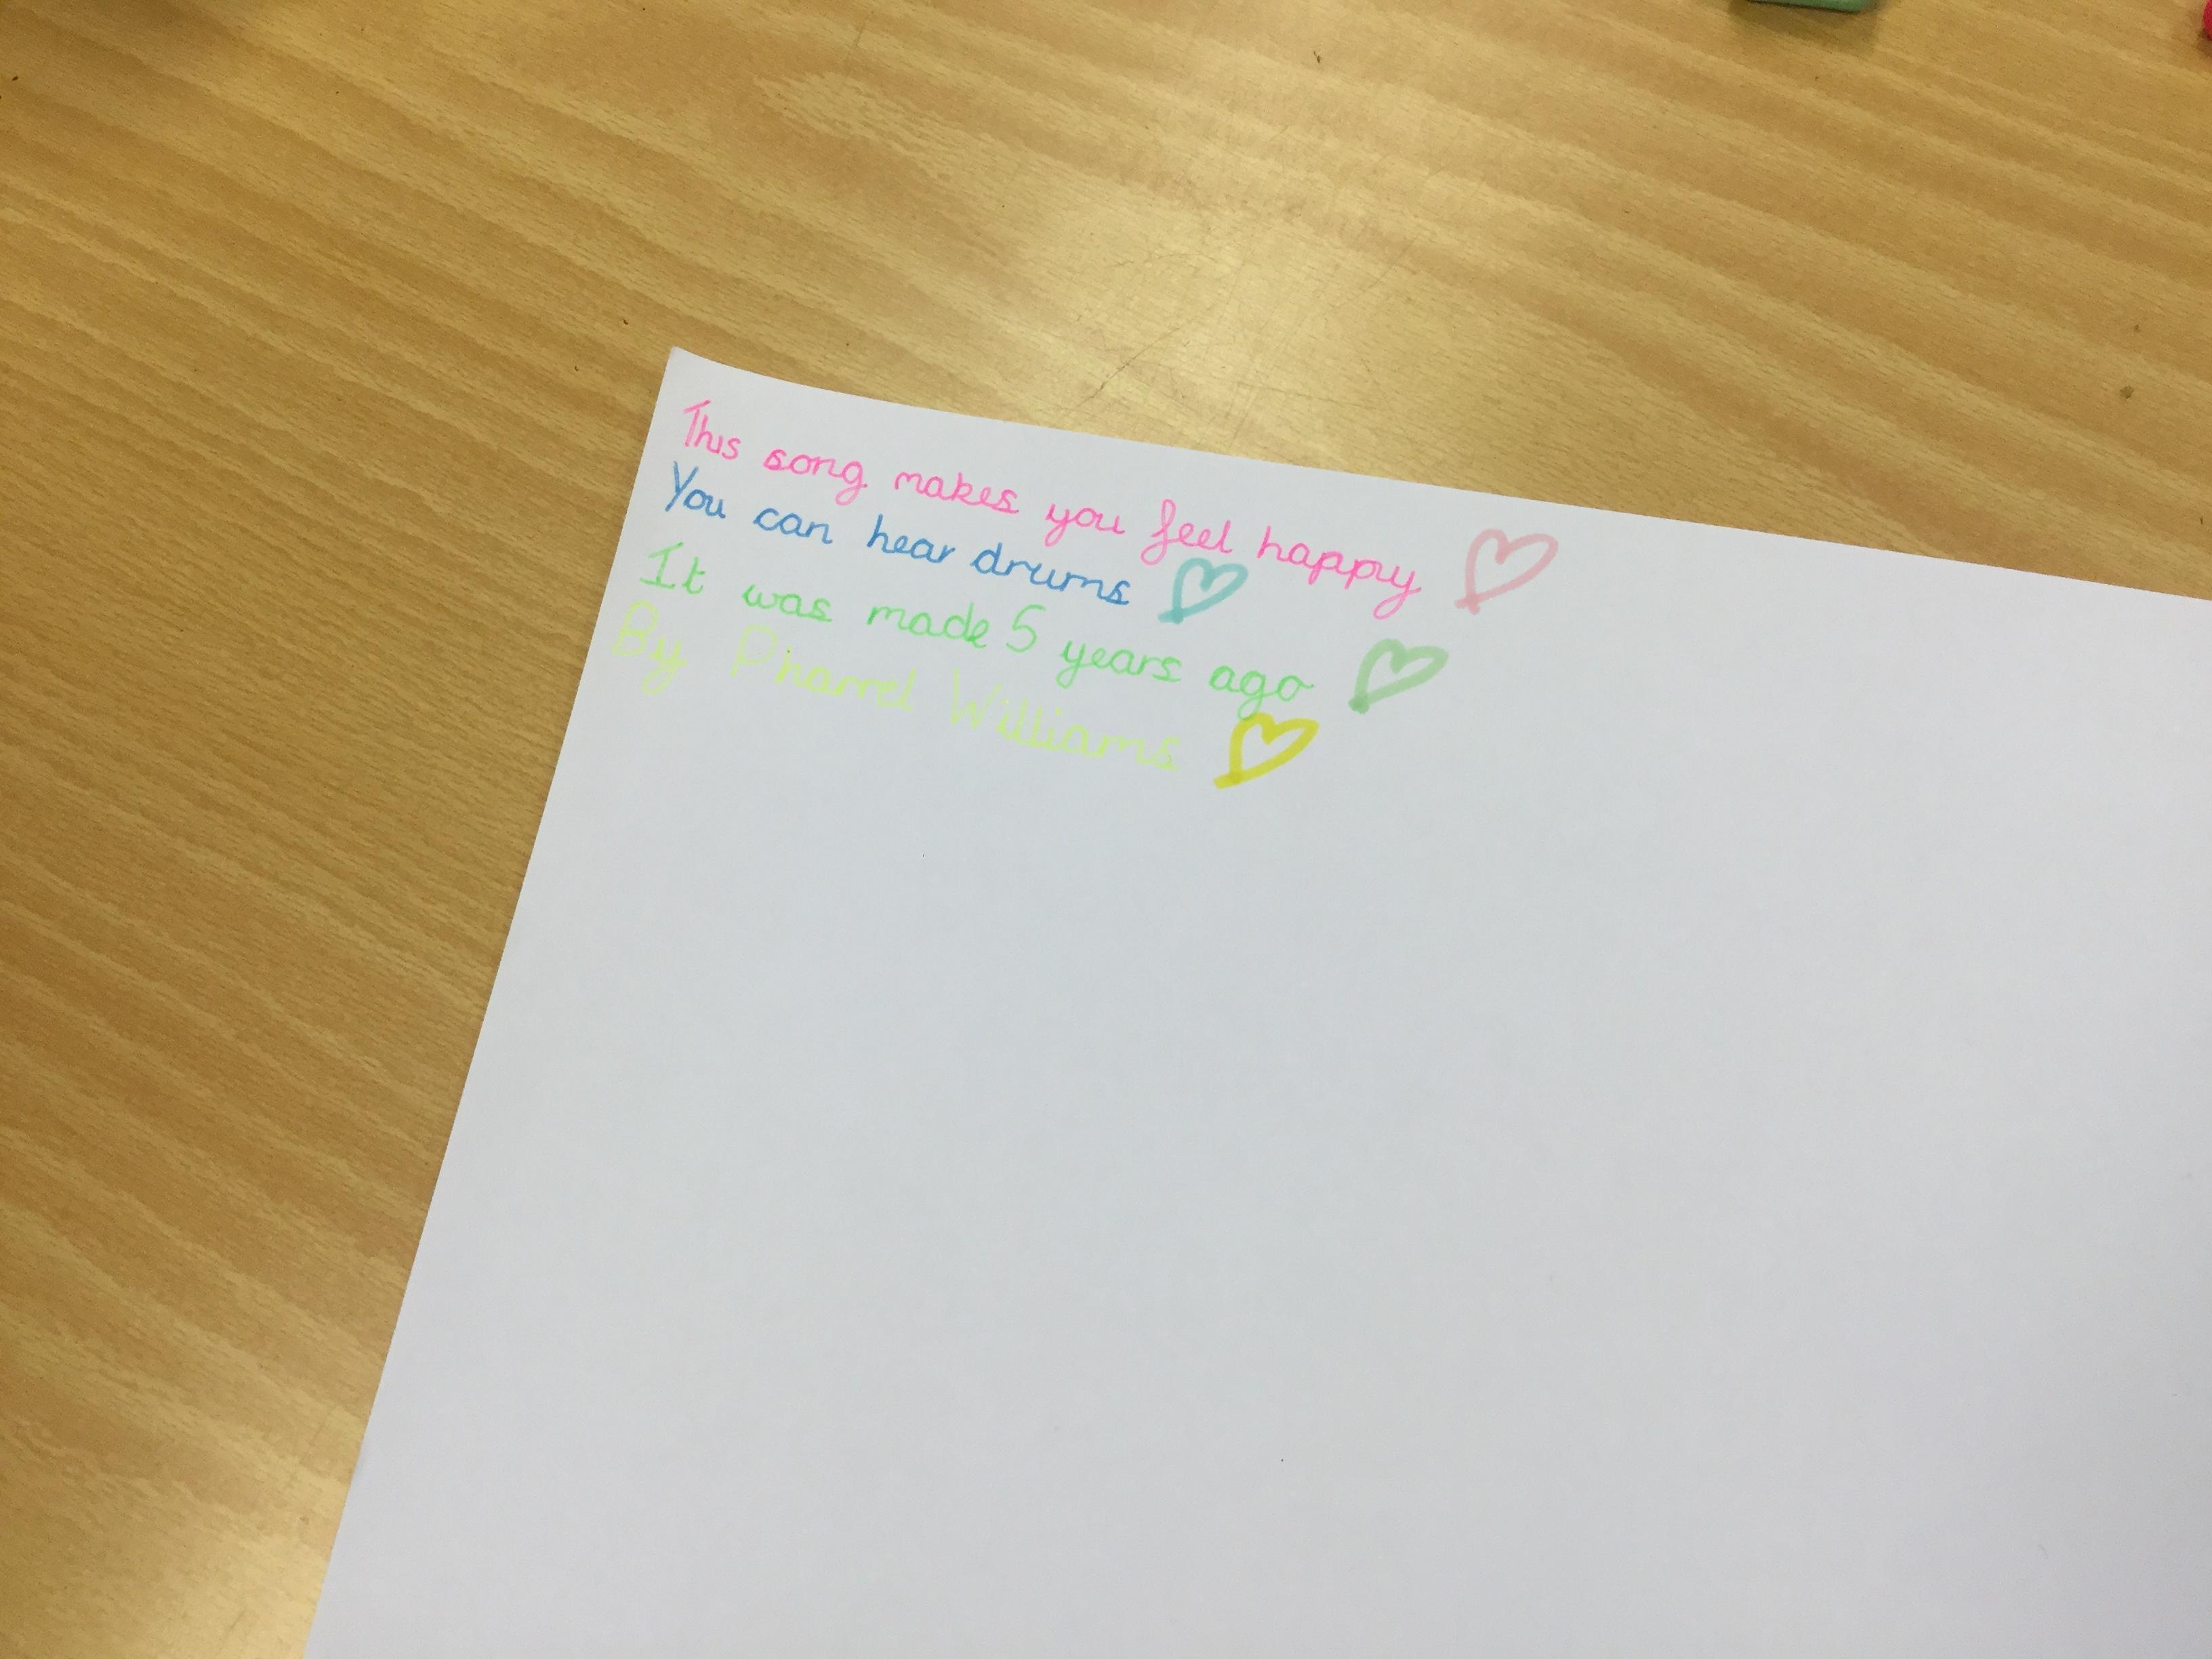 This song makes you feel happy
You can hear drums
It was made 5 years ago
By Pharrel Williams